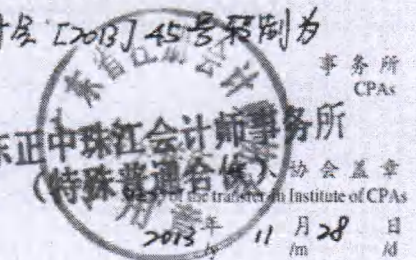 [2013] 45号转制为
事务所
CPAs
东正中珠江会计师事务所
(特殊普通合伙)
协会盖章
of the transfer-in Institute of CPAs
2013年 11月 28日
/y /m /d